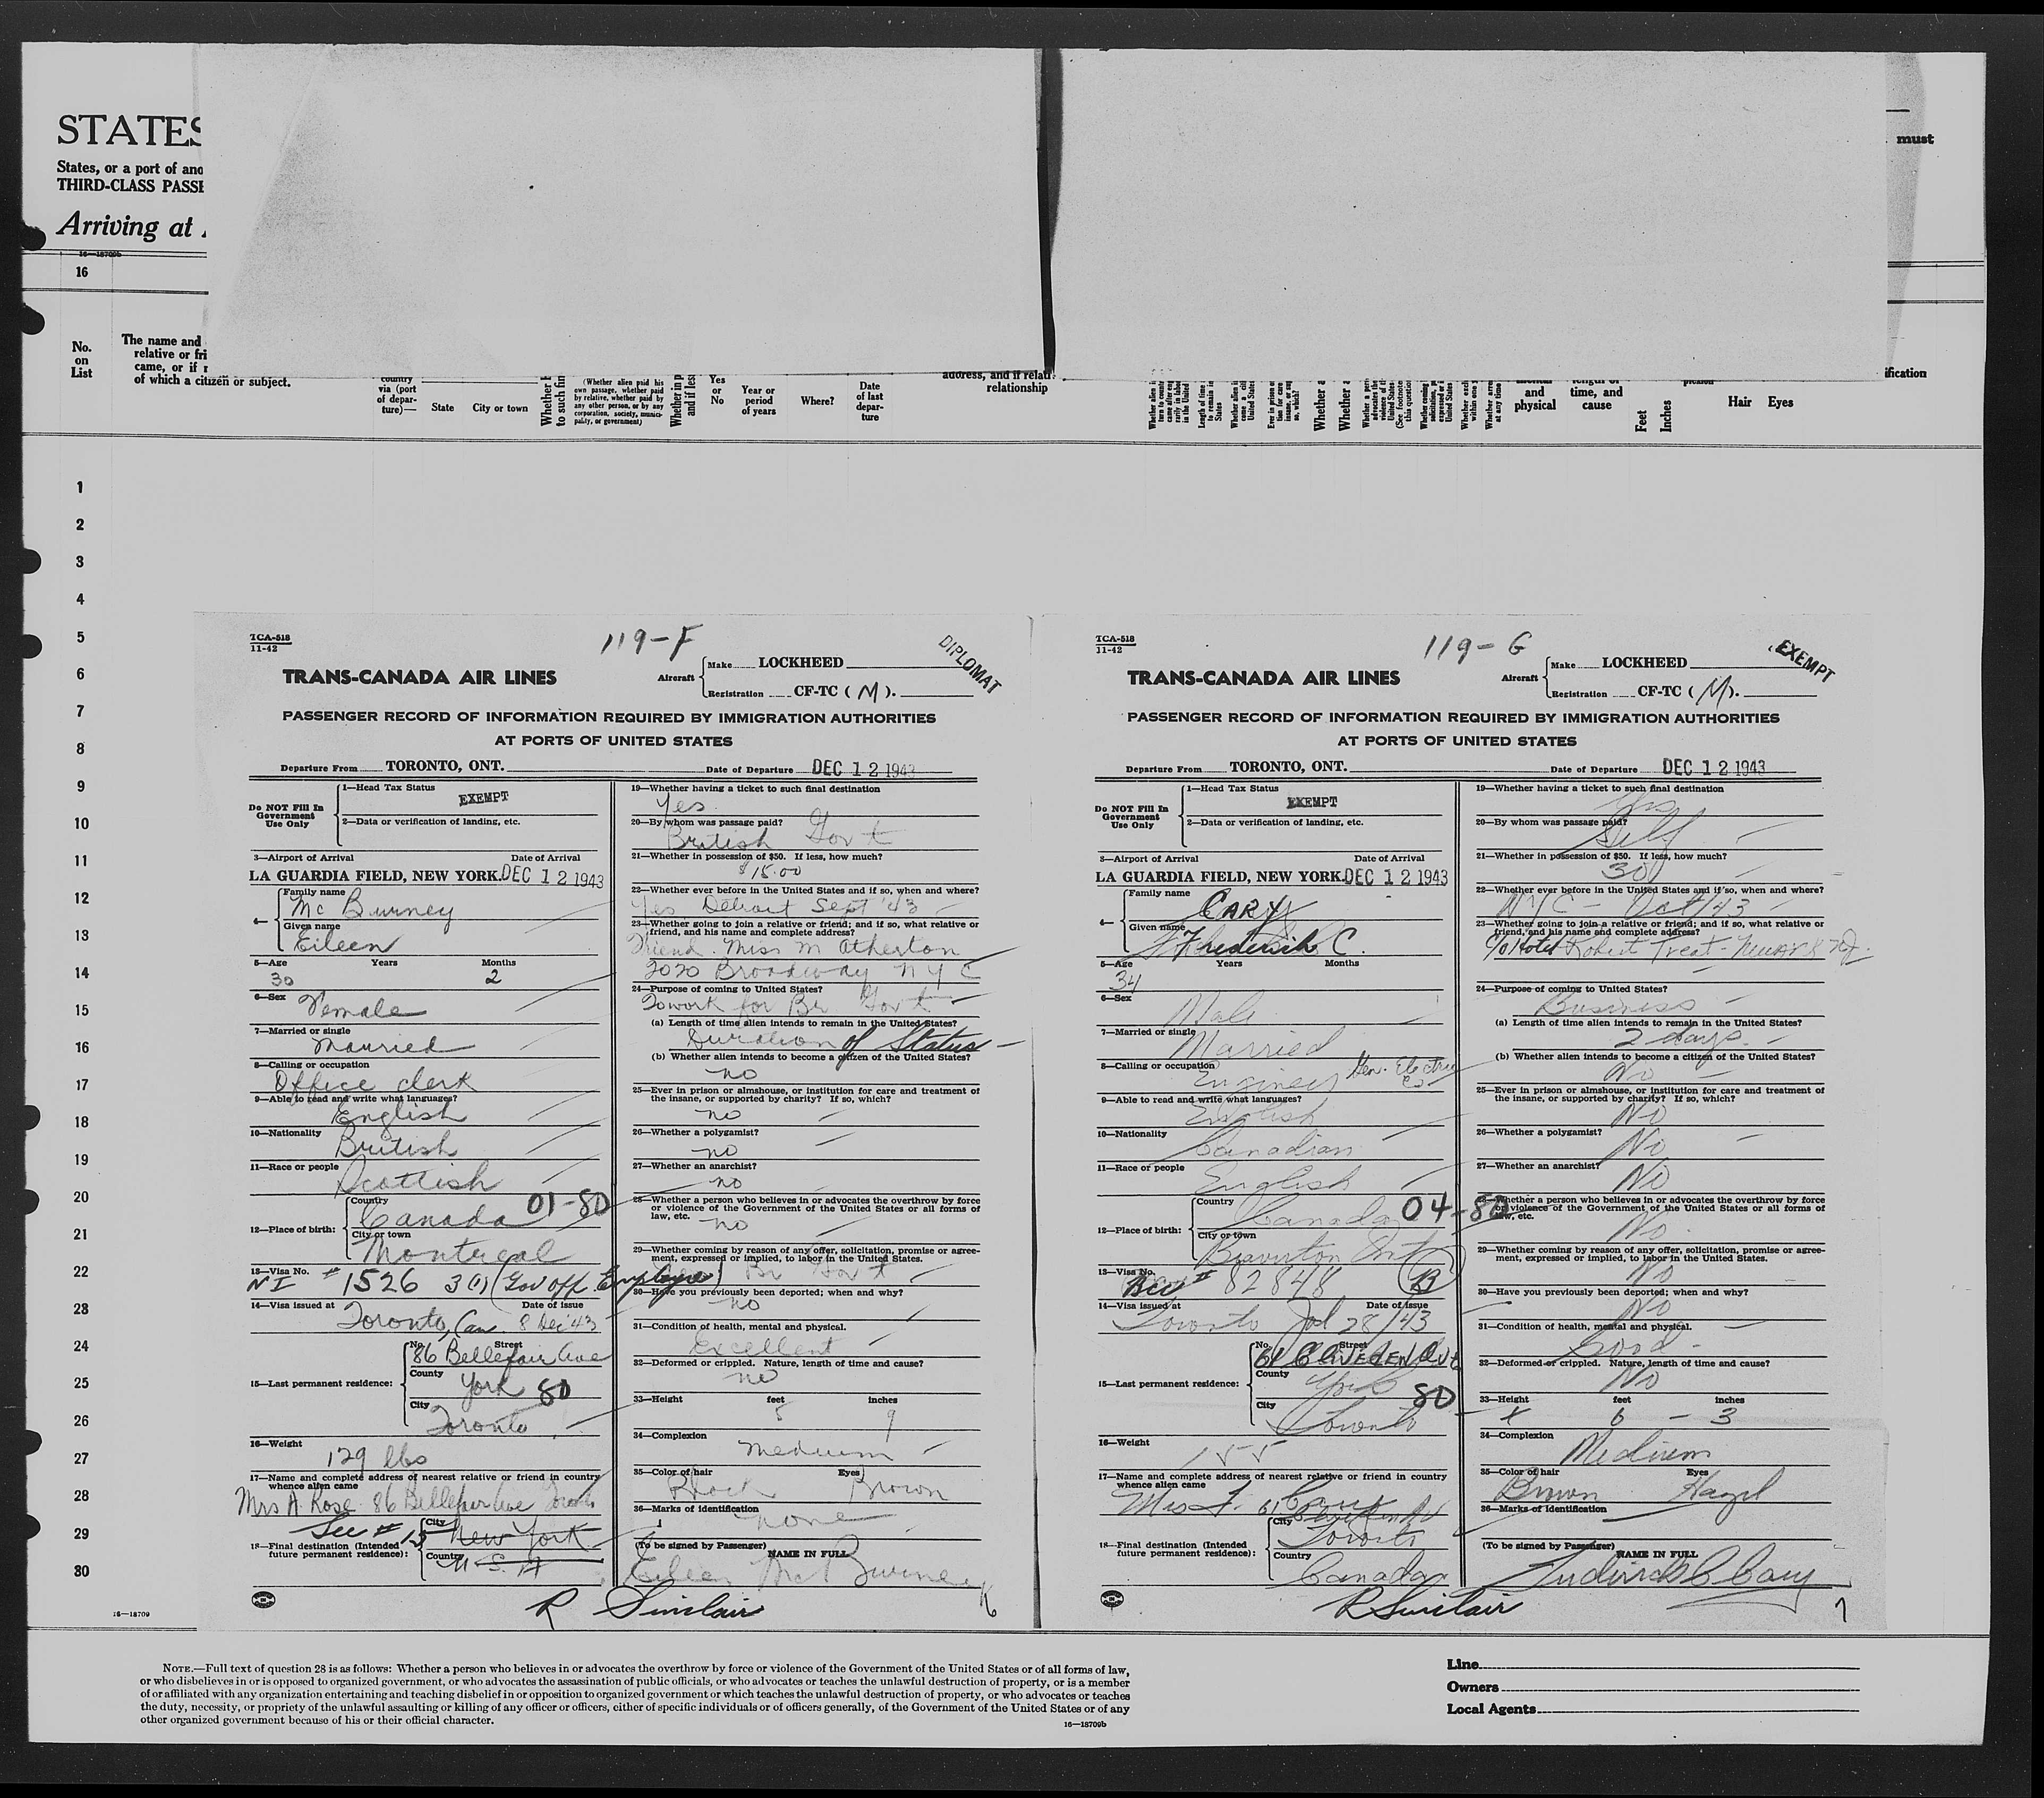 STATES
States, or a port of ano
THIRD-CLASS PASSE
Arriving at
must
16—18709b
16
No.
on
List
The name and
relative or fri
came, or if r
of which a citizen or subject.
country
via (port
of depar-
ture)—
State
City or town
Whether
to such fin
(Whether alien paid his
own passage, whether paid
by relative, whether paid by
any other person, or by any
corporation, society, munic-
pality, or government)
Whether in p
and if less
Yes
or
No
Year or
period
of years
Where?
Date
of last
depar-
ture
address, and if relati
relationship
Whether
Whether
and
physical
length of
time, and
cause
Feet
Inches
Hair
Eyes
ification
1
2
3
4
5
6
7
8
9
10
11
12
13
14
15
16
17
18
19
20
21
22
23
24
25
26
27
28
29
30
TCA-518
11-42
119-F
DIPLOMAT
TRANS-CANADA AIR LINES
Aircraft
Make LOCKHEED
Registration CF-TC (M).
PASSENGER RECORD OF INFORMATION REQUIRED BY IMMIGRATION AUTHORITIES
AT PORTS OF UNITED STATES
Departure From TORONTO, ONT. Date of Departure DEC 12 1943
Do NOT Fill In
Government
Use Only
1—Head Tax Status
EXEMPT
2—Data or verification of landing, etc.
3—Airport of Arrival Date of Arrival
LA GUARDIA FIELD, NEW YORK. DEC 12 1943
4—
Family name
Mc Burney
Given name
Eileen
5—Age Years Months
30 2
6—Sex
Female
7—Married or single
Married
8—Calling or occupation
Office clerk
9—Able to read and write what languages?
English
10—Nationality
British
11—Race or people
Scottish
12—Place of birth:
Country
Canada 01-80
City or town
Montreal
13—Visa No.
NI # 1526 3(1) (Gov off. Employee)
14—Visa issued at Date of issue
Toronto, Can 8 Dec '43
15—Last permanent residence:
No. Street
86 Bellefair Ave
County
York 80
City
Toronto
16—Weight
129 lbs
17—Name and complete address of nearest relative or friend in country
whence alien came
Mrs A. Rose 86 Bellefair Ave Toronto
See # 15
18—Final destination (Intended
future permanent residence):
City
New York
Country
U.S.A
19—Whether having a ticket to such final destination
Yes
20—By whom was passage paid?
British Gov't
21—Whether in possession of $50. If less, how much?
$15.00
22—Whether ever before in the United States and if so, when and where?
Yes Detroit Sept '43
23—Whether going to join a relative or friend; and if so, what relative or
friend, and his name and complete address?
Friend. Miss M Atherton
2020 Broadway N Y C
24—Purpose of coming to United States?
To work for Br Gov't
(a) Length of time alien intends to remain in the United States?
Duration of Status
(b) Whether alien intends to become a citizen of the United States?
no
25—Ever in prison or almshouse, or institution for care and treatment of
the insane, or supported by charity? If so, which?
no
26—Whether a polygamist?
no
27—Whether an anarchist?
no
28—Whether a person who believes in or advocates the overthrow by force
or violence of the Government of the United States or all forms of
law, etc.
no
29—Whether coming by reason of any offer, solicitation, promise or agree-
ment, expressed or implied, to labor in the United States.
Br Gov't
30—Have you previously been deported; when and why?
no
31—Condition of health, mental and physical.
Excellent
32—Deformed or crippled. Nature, length of time and cause?
no
33—Height feet inches
5 9
34—Complexion
Medium
35—Color of hair Eyes
Black Brown
36—Marks of identification
none
(To be signed by Passenger) NAME IN FULL
Eileen McBurney
R Sinclair
TCA-518
11-42
119-G
EXEMPT
TRANS-CANADA AIR LINES
Aircraft
Make LOCKHEED
Registration CF-TC (M).
PASSENGER RECORD OF INFORMATION REQUIRED BY IMMIGRATION AUTHORITIES
AT PORTS OF UNITED STATES
Departure From TORONTO, ONT. Date of Departure DEC 12 1943
Do NOT Fill In
Government
Use Only
1—Head Tax Status
EXEMPT
2—Data or verification of landing, etc.
3—Airport of Arrival Date of Arrival
LA GUARDIA FIELD, NEW YORK. DEC 12 1943
4—
Family name
CARY
Given name
Frederick C.
5—Age Years Months
34
6—Sex
Male
7—Married or single
Married
8—Calling or occupation
Engineer Gen. Electric Co
9—Able to read and write what languages?
English
10—Nationality
Canadian
11—Race or people
English
12—Place of birth:
Country
Canada 04-80
City or town
Beaverton Ont
13—Visa No.
Bcc # 82848 B
14—Visa issued at Date of issue
Toronto Jul 28/43
15—Last permanent residence:
No. Street
61 CLIVEDEN Ave
County
York 80
City
Toronto
16—Weight
155
17—Name and complete address of nearest relative or friend in country
whence alien came
Mrs F. Cary 61 Cliveden Av
18—Final destination (Intended
future permanent residence):
City
Toronto
Country
Canada
19—Whether having a ticket to such final destination
Yes
20—By whom was passage paid?
Self
21—Whether in possession of $50. If less, how much?
30
22—Whether ever before in the United States and if so, when and where?
NYC - Oct/43
23—Whether going to join a relative or friend; and if so, what relative or
friend, and his name and complete address?
c/o Hotel Robert Treat - Newark NJ.
24—Purpose of coming to United States?
Business
(a) Length of time alien intends to remain in the United States?
2 days.
(b) Whether alien intends to become a citizen of the United States?
No
25—Ever in prison or almshouse, or institution for care and treatment of
the insane, or supported by charity? If so, which?
No
26—Whether a polygamist?
No
27—Whether an anarchist?
No
28—Whether a person who believes in or advocates the overthrow by force
or violence of the Government of the United States or all forms of
law, etc.
No
29—Whether coming by reason of any offer, solicitation, promise or agree-
ment, expressed or implied, to labor in the United States.
No
30—Have you previously been deported; when and why?
No
31—Condition of health, mental and physical.
Good
32—Deformed or crippled. Nature, length of time and cause?
No
33—Height feet inches
6 - 3
34—Complexion
Medium
35—Color of hair Eyes
Brown Hazel
36—Marks of identification
(To be signed by Passenger) NAME IN FULL
Frederick C Cary
R Sinclair
7
16—18709
NOTE.—Full text of question 28 is as follows: Whether a person who believes in or advocates the overthrow by force or violence of the Government of the United States or of all forms of law,
or who disbelieves in or is opposed to organized government, or who advocates the assassination of public officials, or who advocates or teaches the unlawful destruction of property, or is a member
of or affiliated with any organization entertaining and teaching disbelief in or opposition to organized government or which teaches the unlawful destruction of property, or who advocates or teaches
the duty, necessity, or propriety of the unlawful assaulting or killing of any officer or officers, either of specific individuals or of officers generally, of the Government of the United States or of any
other organized government because of his or their official character.
16—18709b
Line
Owners
Local Agents